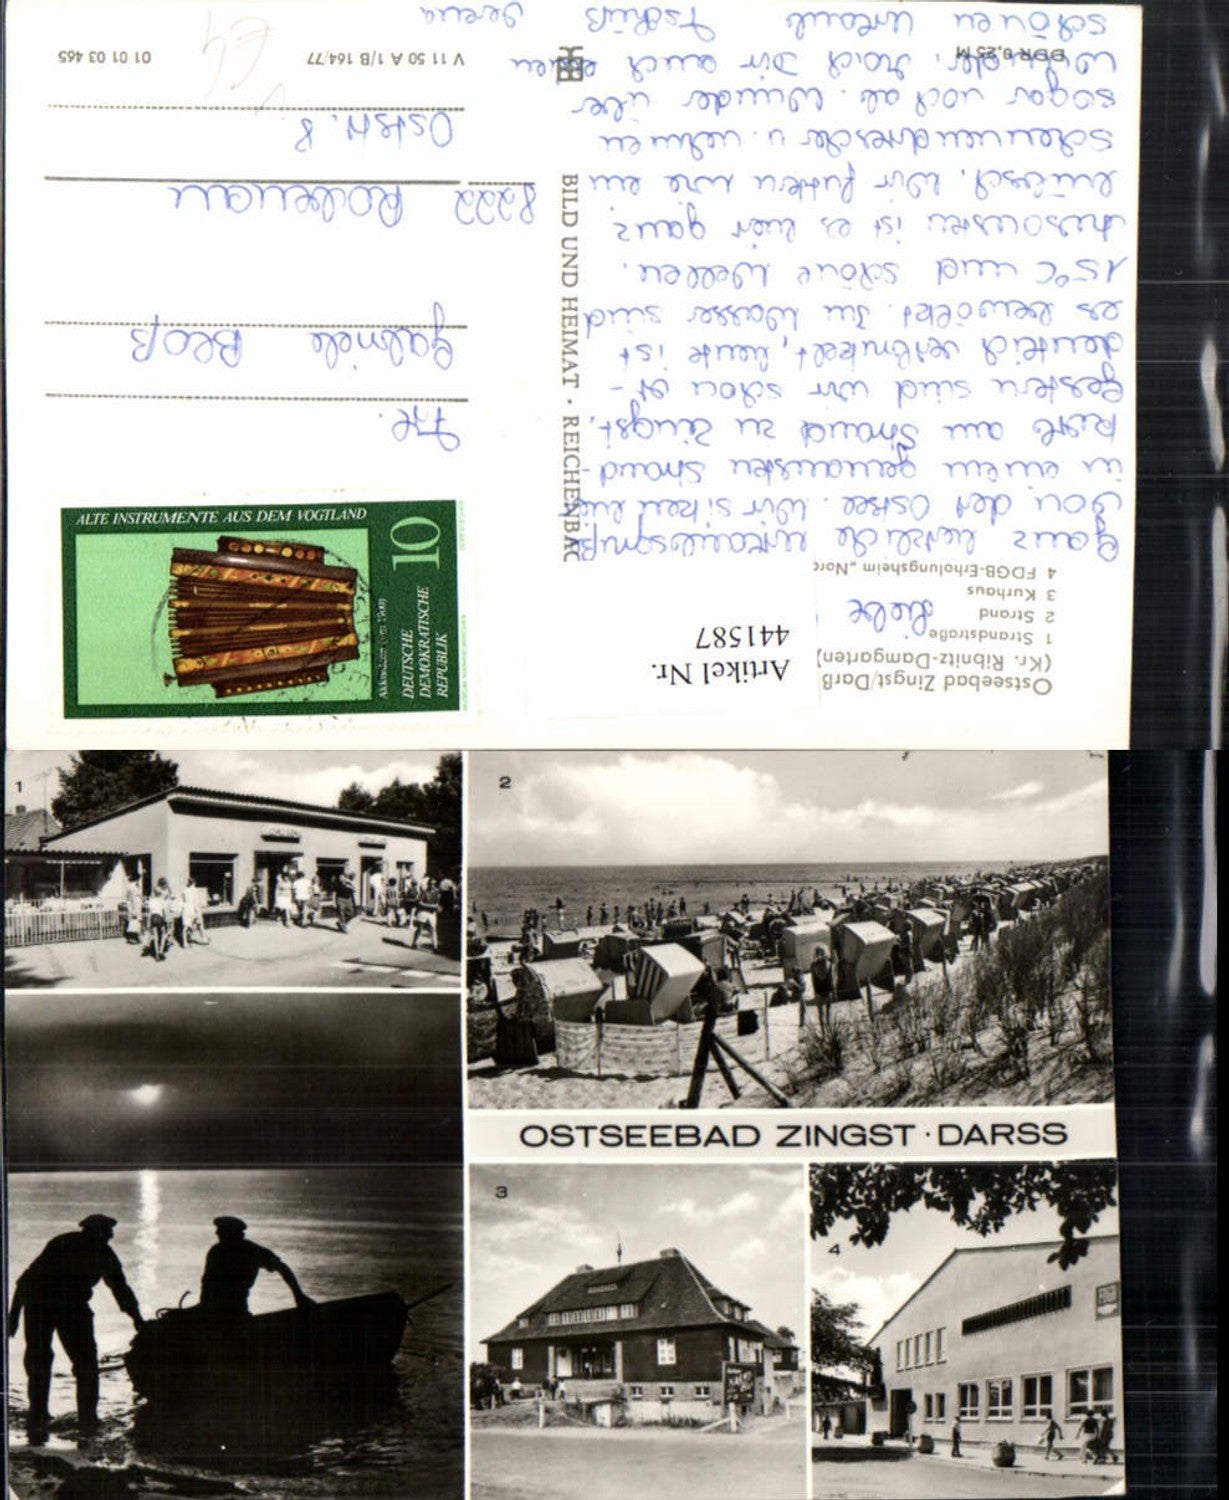 Ostseebad Zingst/Darß
(Kr. Ribnitz-Damgarten)
1 Strandstraße
2 Strand
3 Kurhaus
4 FDGB-Erholungsheim „Nord
Artikel Nr.
441587
Liebe
Ganz herzliche Urlaubsgrüße
von der Ostsee. Wir sitzen
in einem gemausten Strand-
körb am Strand zu Zingst.
Gestern sind wir schon or-
dentlich verbrutzelt, heute ist
es bewölkt. Im Wasser sind
15°C und schöne Wellen.
Ansonsten ist es hier ganz
hübsch. Wir futtern wie ein
Scheunendrescher u. nehmen
sogar noch ab. Wunder über
Wunder. Noch Dir auch einen
schönen Urlaub Tschüß Verena
BILD UND HEIMAT · REICHENBAC
ALTE INSTRUMENTE AUS DEM VOGTLAND
10
DEUTSCHE
DEMOKRATISCHE
REPUBLIK
Frl.
Gabriele Bloß
8222 Rabenau
Oststr. 8
V 11 50 A 1/B 164/77
01 01 03 465
DDR 0,25 M
1
2
OSTSEEBAD ZINGST · DARSS
3
4